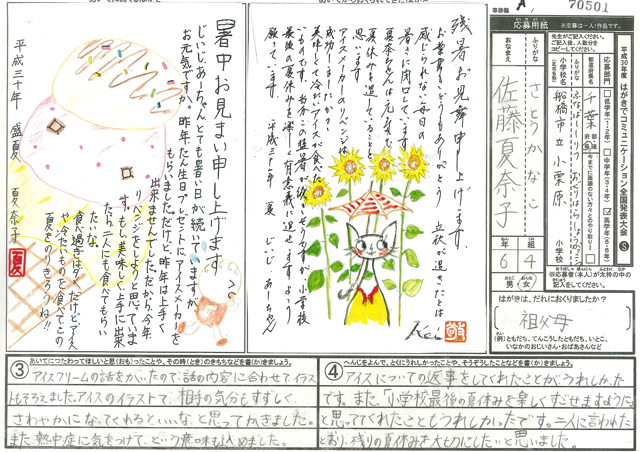 70501
応募用紙
※応募は一人1作品です。
平成30年度 はがきでコミュニケーション全国発表大会
先生がご記入ください。
ご記入後、人数分を
コピーしてください。
応募部門
低学年(1・2年)
中学年(3・4年)
高学年(5・6年)
都道府県名
千葉
ふりがな
小学校名
船橋市立 小栗原
小学校
ふりがな
さとうかなこ
おなまえ
佐藤夏奈子
6年
4組
男・女
※応募者(本人)が太枠の中の
記入をしてください。
はがきは、だれにおくりましたか?
祖父母
(例)ともだち、てんこうしたともだち、いとこ、
いなかのおじいさん・おばあさんなど
暑中お見まい申し上げます
じいじ、あーちゃん、とても暑い日が続いていますが、
お元気ですか。昨年、たん生日プレゼントにアイスメーカーを
もらいました。だけど、昨年は上手く
出来ませんでした。だから、今年、
リベンジをしようと思っていま
す。もし、美味しく上手に出来
たら、二人にも食べてもらい
たいな。
食べ過ぎはダメだけど、アイス
や、冷たいものを食べてこの
夏をのりきろうね!!
平成三十年 盛夏 夏奈子
夏
残暑お見舞申し上げます。
お葉書どうもありがとう 立秋が過ぎたとは
感じられない毎日の
暑さに閉口しています。
夏奈ちゃんは元気で
夏休みを過していることと
思います。
アイスメーカーのリベンジは
成功しましたか?
平成三十年 夏 じいじ あーちゃん
Kei
③あいてにつたわってほしいと思(おも)ったことや、その時(とき)のきもちなどを書(か)きましょう。
アイスクリームの話をかいたので、話の内容に合わせてイラス
トもそろえました。アイスのイラストで、相手の気分もすずしく、
さわやかになってくれるといいな、と思ってかきました。
また、熱中症に気をつけて、という意味も込めました。
④へんじをよんで、とくにうれしかったことや、そうぞうしたことなどを書(か)きましょう。
アイスについての返事をしてくれたことがうれしかった
です。また、「小学校最後の夏休みを楽しくすごせますように」
と思ってくれたこともうれしかったです。二人に言われた
とおり、残りの夏休みを大切にしたいと思いました。